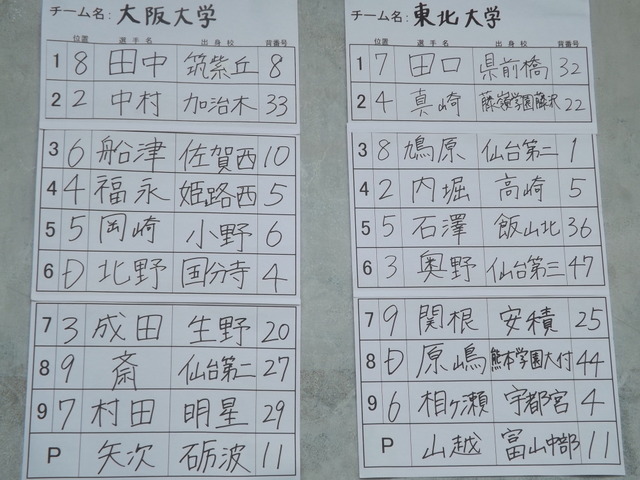 チーム名: 大阪大学
位置 選手名 出身校 背番号
1 8 田中 筑紫丘 8
2 2 中村 加治木 33
3 6 船津 佐賀西 10
4 4 福永 姫路西 5
5 5 岡崎 小野 6
6 D 北野 国分寺 4
7 3 成田 生野 20
8 9 斎 仙台第二 27
9 7 村田 明星 29
P 矢次 砺波 11
チーム名: 東北大学
位置 選手名 出身校 背番号
1 7 田口 県前橋 32
2 4 真崎 藤嶺学園藤沢 22
3 8 鳩原 仙台第二 1
4 2 内堀 高崎 5
5 5 石澤 飯山北 36
6 3 奥野 仙台第三 47
7 9 関根 安積 25
8 D 原嶋 熊本学園大付 44
9 6 相ヶ瀬 宇都宮 4
P 山越 富山中部 11